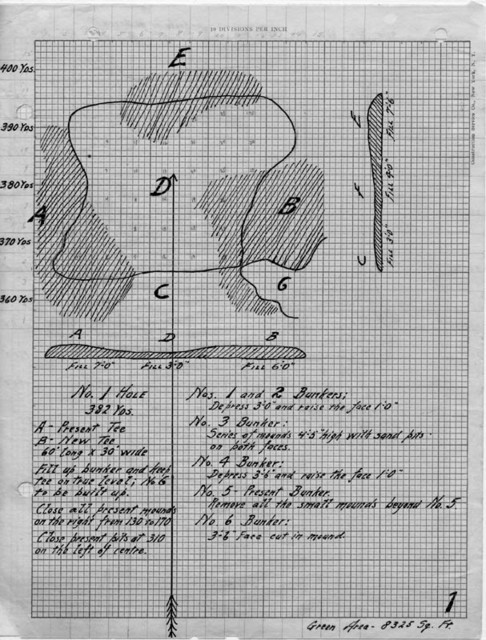 10 DIVISIONS PER INCH
E
400 Yds.
390 Yds
380 Yds
370 Yds
360 Yds
A
D
B
C
6
E
F
C
Fill 7'-6"
Fill 4'-0"
Fill 3'-0"
A D B
Fill 7'-0" Fill 3'-0" Fill 6'-0"
No. 1 Hole
382 Yds.
A - Present Tee
B - New Tee
60' long x 30' wide
Fill up bunker and keep
tee on true level; No 6
to be built up.
Close all present mounds
on the right from 130 to 170
Close present pits at 310
on the left of centre.
Nos. 1 and 2 Bunkers;
Depress 3'-0" and raise the face 1'-0"
No. 3 Bunker:
Series of mounds 4'-5' high with sand pits
on both faces.
No. 4 Bunker:
Depress 3'-6" and raise the face 1'-0"
No. 5 - Present Bunker.
Remove all the small mounds beyond No. 5
No. 6 Bunker:
3'-6 face cut in mound.
1
Green Area - 8325 Sq. Ft.